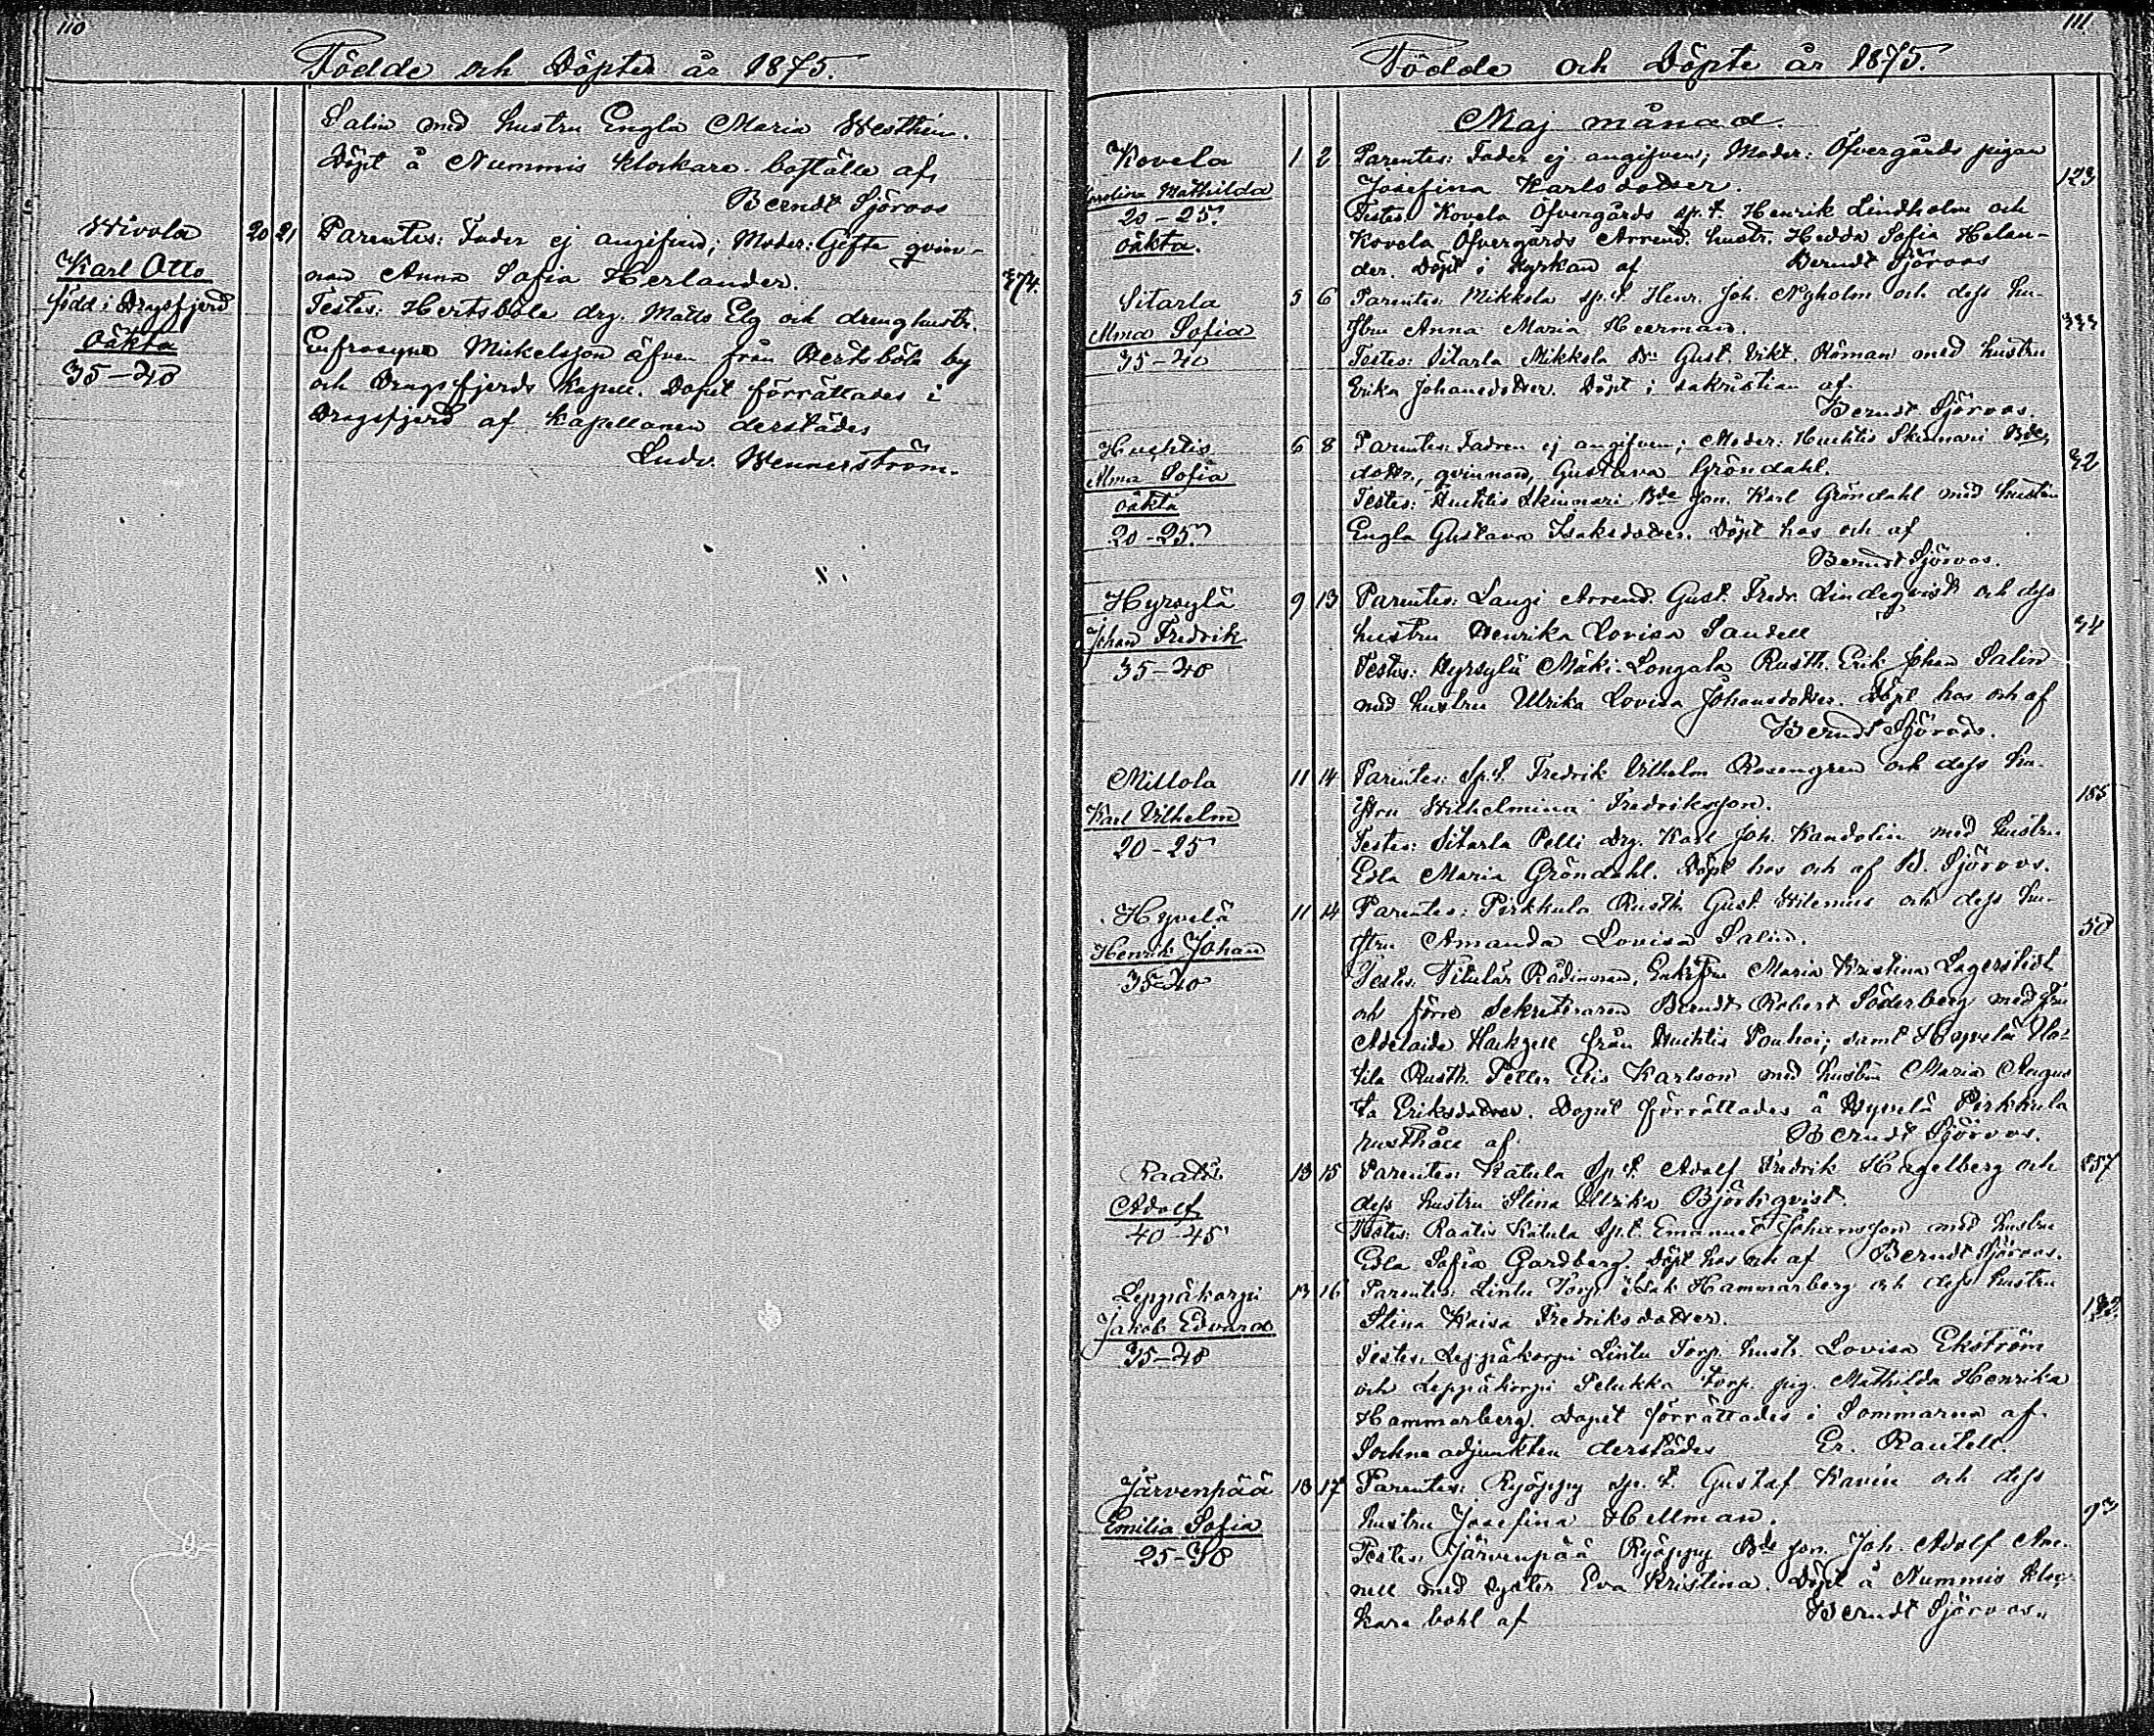 110
Födde och Döpte år 1875.
Salin med hustru Engla Maria Westhin.
Döpt å Nummis klockare boställe af
Berndt Sjöroos
Wivola 20 21 Parentes: Fader ej angifven; Moder: Gifta qvin-
Karl Otto nan Anna Sofia Herlander. 374.
född i Dragsfjerd Testes: Hertsböle drg. Matts Elg och drenghustr.
Oäkta Eufrosyne Mikelsson äfven från Hertsböle by
35-40 och Dragsfjerds Kapell. Dopet förrättades i
Dragsfjerd af Kapellanen derstädes
Ludv. Wennerström.
111
Födde och Döpte år 1875.
Maj månad.
Kovela 1 2 Parentes: Fader ej angifven; Moder: Öfvergårds pigan
Karolina Mathilda Josefina Karlsdotter. 123
20-25. Testes: Kovela Öfvergårds sp.t. Henrik Lindholm och
oäkta. Kovela Öfvergårds Arrend. hustr. Hedda Sofia Helan-
der. Döpt i kyrkan af Berndt Sjöroos
Sitarla 5 6 Parentes: Mikkola sp.t. Henr. Joh. Nyholm och dess hu-
Alma Sofia stru Anna Maria Heerman. 333
35-40 Testes: Sitarla Mikkola Bn Gust. Vikt. Roman med hustru
Erika Johansdotter. Döpt i sakristian af
Berndt Sjöroos.
Huhtis 6 8 Parentes: Fadren ej angifven; Moder: Huhtis Skinnari Bde
Alma Sofia dottr., qvinnan, Gustava Gröndahl. 32
oäkta Testes: Huhtis Skinnari Bde son. Karl Gröndahl med hustru
20-25. Engla Gustava Isaksdotter. Döpt hos och af
Berndt Sjöroos.
Hyrsylä 9 13 Parentes: Langi Arrend. Gust. Fredr. Lindeqvist och dess
Johan Fredrik hustru Henrika Lovisa Sandell 34
35-40 Testes: Hyrsylä Mäki-Longala Rusth. Erik Johan Salin
med hustru Ulrika Lovisa Johansdotter. Döpt hos och af
Berndt Sjöroos.
Millola 11 14 Parentes: Sp.t. Fredrik Vilhelm Rosengren och dess hu-
Karl Vilhelm stru Wilhelmina Fredriksson. 155
20-25 Testes: Sitarla Pelli drg. Karl Joh. Kandolin med hustru
Edla Maria Gröndahl. Döpt hos och af B. Sjöroos.
Hyvelä 11 14 Parentes: Pirkkula Rusth. Gust. Wilenius och dess hu-
Henrik Johan stru Amanda Lovisa Salin. 50
35-40 Testes: Titulär Rådman, Enkefru Maria Kristina Lagerstedt
och förre Sekreteraren Berndt Robert Söderberg med fru
Adelaide Hackzell från Huhtis Pouhoi; samt Hyvelä Ila-
tila Rusth. Petter Elis Karlson med hustru Maria Augus
ta Eriksdotter. Dopet förrättades å Hyvelä Pirkkula
rusthåll af Berndt Sjöroos.
Raatis 13 15 Parentes: Katula Sp.t. Adolf Fredrik Hagelberg och 257
Adolf dess hustru Stina Ulrika Björkqvist.
40-45 Testes: Raatis Katula Sp.t. Emanuel Johansson med hustru
Edla Sofia Gardberg. Döpt hos och af Berndt Sjöroos.
Leppäkorpi 13 16 Parentes: Lintu Torp. Isak Hammarberg och dess hustru
Jakob Edvard Stina Kaisa Fredriksdotter.
35-40 Testes: Leppäkorpi Lintu Torp. hustr. Lovisa Ekström
och Leppäkorpi Pelukka torp. pig. Mathilda Henrika
Hammarberg. Dopet förrättades i Sommarnä af
Sockne adjunkten derstädes Er. Rautell.
Järvenpää 13 17 Parentes: Ryöppy sp.t. Gustaf Kavén och dess
Emilia Sofia hustru Josefina Hellman. 93
25-30 Testes: Järvenpää Ryöppy Bde son. Joh. Adolf An-
nell med syster Eva Kristina. Döpt å Nummis kloc-
kare bohl af Berndt Sjöroos.